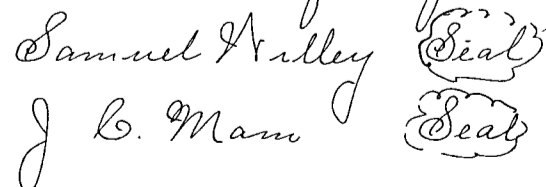 Samuel Willey Seal
J C. Mann Seal